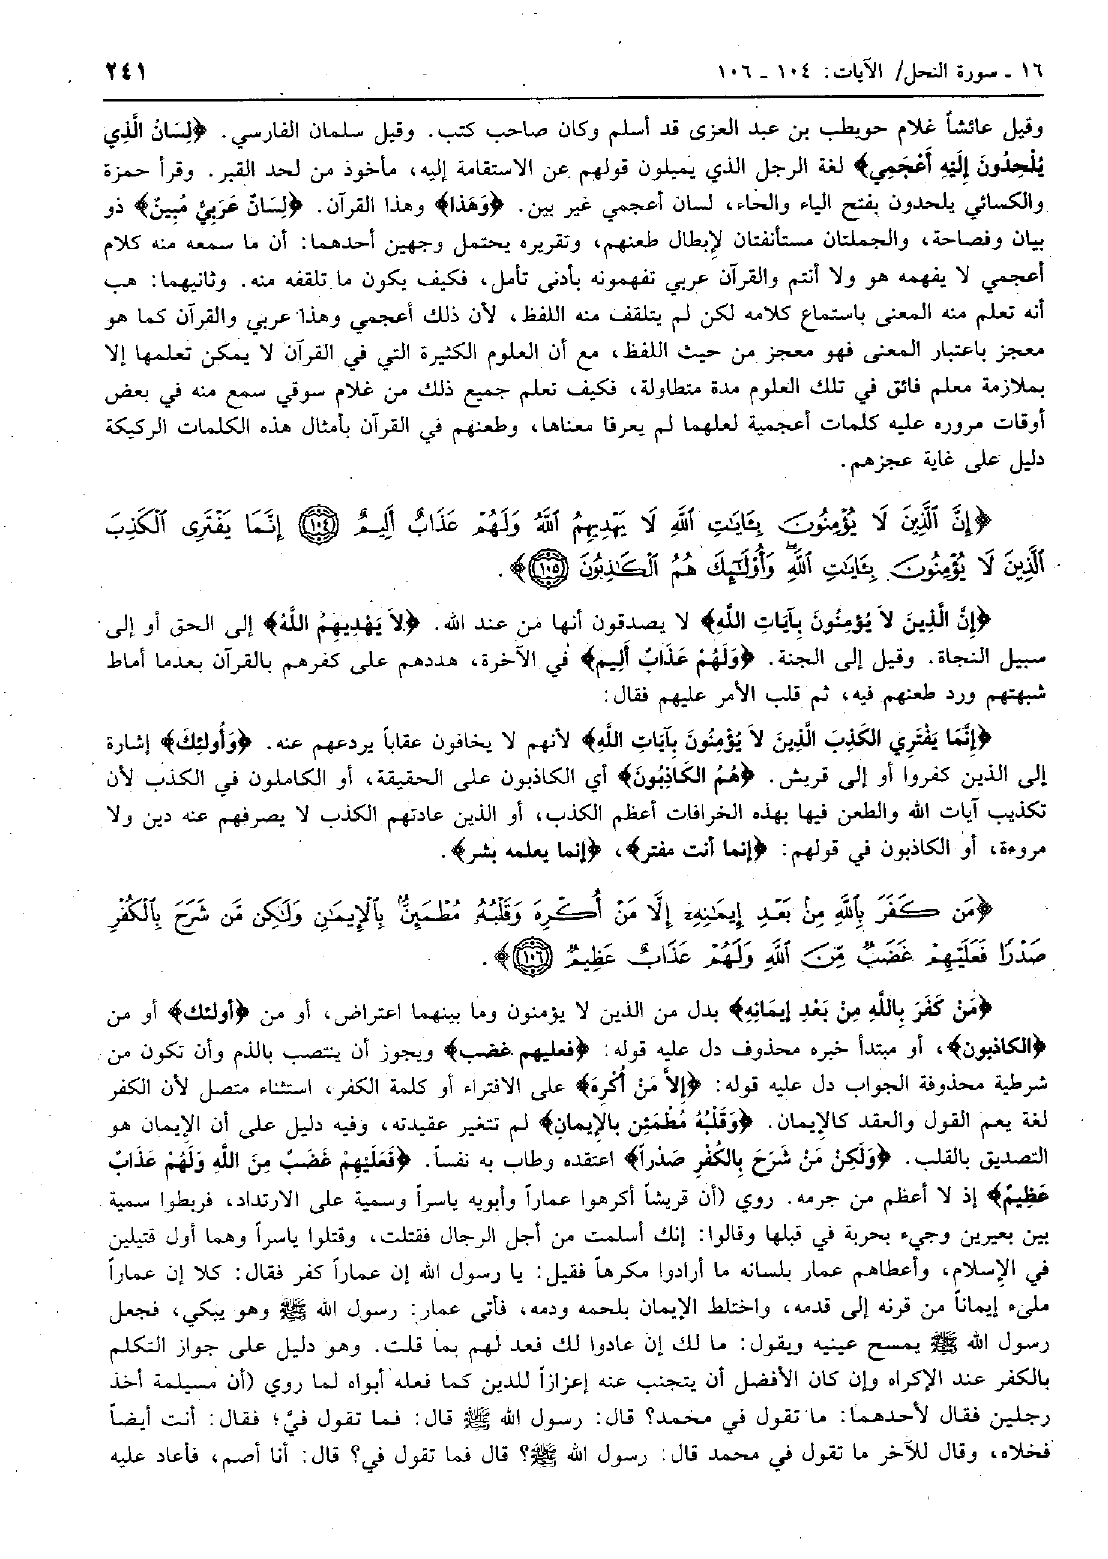 ١٦ ـ سورة النحل/ الآيات: ١٠٤ ـ ١٠٦
٢٤١
وقيل عائشاً غلام حويطب بن عبد العزى قد أسلم وكان صاحب كتب. وقيل سلمان الفارسي. ﴿لِسَانُ الَّذِي
يُلْحِدُونَ إِلَيْهِ أَعْجَمِي﴾ لغة الرجل الذي يميلون قولهم عن الاستقامة إليه، مأخوذ من لحد القبر. وقرأ حمزة
والكسائي يلحدون بفتح الياء والحاء، لسان أعجمي غير بين. ﴿وَهَذَا﴾ وهذا القرآن. ﴿لِسَانٌ عَرَبِيٌ مُبِينٌ﴾ ذو
بيان وفصاحة، والجملتان مستأنفتان لإبطال طعنهم، وتقريره يحتمل وجهين أحدهما: أن ما سمعه منه كلام
أعجمي لا يفهمه هو ولا أنتم والقرآن عربي تفهمونه بأدنى تأمل، فكيف يكون ما تلقفه منه. وثانيهما: هب
أنه تعلم منه المعنى باستماع كلامه لكن لم يتلقف منه اللفظ، لأن ذلك أعجمي وهذا عربي والقرآن كما هو
معجز باعتبار المعنى فهو معجز من حيث اللفظ، مع أن العلوم الكثيرة التي في القرآن لا يمكن تعلمها إلا
بملازمة معلم فائق في تلك العلوم مدة متطاولة، فكيف تعلم جميع ذلك من غلام سوقي سمع منه في بعض
أوقات مروره عليه كلمات أعجمية لعلهما لم يعرفا معناها، وطعنهم في القرآن بأمثال هذه الكلمات الركيكة
دليل على غاية عجزهم.
﴿إِنَّ ٱلَّذِينَ لَا يُؤْمِنُونَ بِـَٔايَٰتِ ٱللَّهِ لَا يَهْدِيهِمُ ٱللَّهُ وَلَهُمْ عَذَابٌ أَلِيمٌ ١٠٤ إِنَّمَا يَفْتَرِى ٱلْكَذِبَ
ٱلَّذِينَ لَا يُؤْمِنُونَ بِـَٔايَٰتِ ٱللَّهِۖ وَأُوْلَٰٓئِكَ هُمُ ٱلْكَٰذِبُونَ ١٠٥﴾.
﴿إِنَّ الَّذِينَ لاَ يُؤْمِنُونَ بِآيَاتِ اللَّهِ﴾ لا يصدقون أنها من عند الله. ﴿لاَ يَهْدِيهِمُ اللَّهُ﴾ إلى الحق أو إلى
سبيل النجاة. وقيل إلى الجنة. ﴿وَلَهُمْ عَذَابٌ أَلِيم﴾ في الآخرة، هددهم على كفرهم بالقرآن بعدما أماط
شبهتهم ورد طعنهم فيه، ثم قلب الأمر عليهم فقال:
﴿إِنَّمَا يَفْتَرِي الكَذِبَ الَّذِينَ لاَ يُؤْمِنُونَ بِآيَاتِ اللَّهِ﴾ لأنهم لا يخافون عقاباً يردعهم عنه. ﴿وَأُولئِكَ﴾ إشارة
إلى الذين كفروا أو إلى قريش. ﴿هُمُ الكَاذِبُونَ﴾ أي الكاذبون على الحقيقة، أو الكاملون في الكذب لأن
تكذيب آيات الله والطعن فيها بهذه الخرافات أعظم الكذب، أو الذين عادتهم الكذب لا يصرفهم عنه دين ولا
مروءة، أو الكاذبون في قولهم: ﴿إنما أنت مفتر﴾، ﴿إنما يعلمه بشر﴾.
﴿مَن كَفَرَ بِٱللَّهِ مِنۢ بَعْدِ إِيمَٰنِهِۦٓ إِلَّا مَنْ أُكْرِهَ وَقَلْبُهُۥ مُطْمَئِنٌّۢ بِٱلْإِيمَٰنِ وَلَٰكِن مَّن شَرَحَ بِٱلْكُفْرِ
صَدْرًا فَعَلَيْهِمْ غَضَبٌ مِّنَ ٱللَّهِ وَلَهُمْ عَذَابٌ عَظِيمٌ ١٠٦﴾.
﴿مَنْ كَفَرَ بِاللَّهِ مِنْ بَعْدِ إِيمَانِهِ﴾ بدل من الذين لا يؤمنون وما بينهما اعتراض، أو من ﴿أولئك﴾ أو من
﴿الكاذبون﴾، أو مبتدأ خبره محذوف دل عليه قوله: ﴿فعليهم غضب﴾ ويجوز أن ينتصب بالذم وأن تكون من
شرطية محذوفة الجواب دل عليه قوله: ﴿إِلاَّ مَنْ أُكْرِهَ﴾ على الافتراء أو كلمة الكفر، استثناء متصل لأن الكفر
لغة يعم القول والعقد كالإيمان. ﴿وَقَلْبُهُ مُطْمَئِن بِالإِيمانِ﴾ لم تتغير عقيدته، وفيه دليل على أن الإيمان هو
التصديق بالقلب. ﴿وَلَكِنْ مَنْ شَرَحَ بِالكُفْرِ صَدْراً﴾ اعتقده وطاب به نفساً. ﴿فَعَلَيْهِمْ غَضَبٌ مِنَ اللَّهِ وَلَهُمْ عَذَابٌ
عَظِيمٌ﴾ إذ لا أعظم من جرمه. روي (أن قريشاً أكرهوا عماراً وأبويه ياسراً وسمية على الارتداد، فربطوا سمية
بين بعيرين وجيء بحربة في قبلها وقالوا: إنك أسلمت من أجل الرجال فقتلت، وقتلوا ياسراً وهما أول قتيلين
في الإسلام، وأعطاهم عمار بلسانه ما أرادوا مكرهاً فقيل: يا رسول الله إن عماراً كفر فقال: كلا إن عماراً
مليء إيماناً من قرنه إلى قدمه، واختلط الإيمان بلحمه ودمه، فأتى عمار: رسول الله ﷺ وهو يبكي، فجعل
رسول الله ﷺ يمسح عينيه ويقول: ما لك إن عادوا لك فعد لهم بما قلت. وهو دليل على جواز التكلم
بالكفر عند الإكراه وإن كان الأفضل أن يتجنب عنه إعزازاً للدين كما فعله أبواه لما روي (أن مسيلمة أخذ
رجلين فقال لأحدهما: ما تقول في محمد؟ قال: رسول الله ﷺ قال: فما تقول فيَّ؛ فقال: أنت أيضاً
فخلاه، وقال للآخر ما تقول في محمد قال: رسول الله ﷺ؟ قال فما تقول في؟ قال: أنا أصم، فأعاد عليه